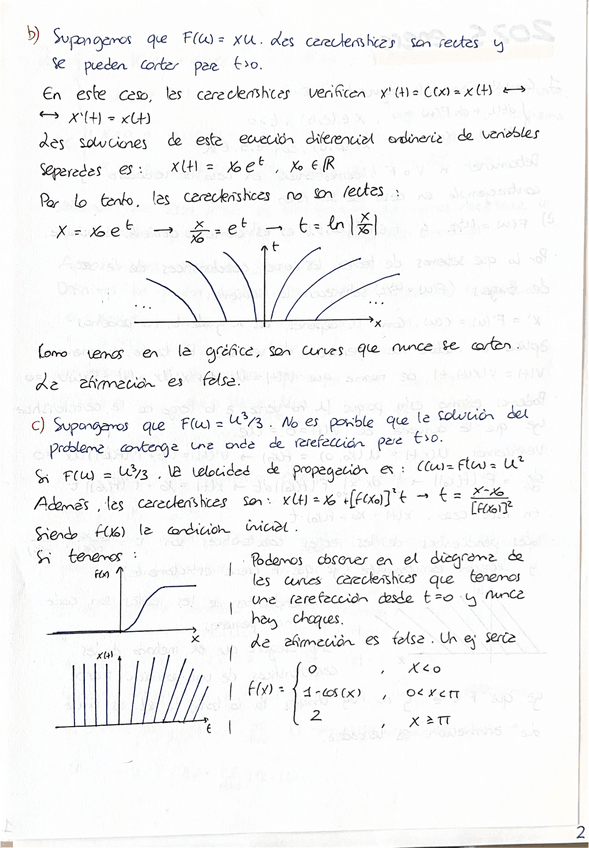 b) Supongamos que F(u) = xu. Las características son rectas y
se pueden cortar para t>0.
En este caso, las características verifican x'(t) = c(x) = x(t) ↔
↔ x'(t) = x(t)
Las soluciones de esta ecuación diferencial ordinaria de variables
separadas es: x(t) = x₀e^t, x₀ ∈ ℝ
Por lo tanto, las características no son rectas:
x = x₀e^t → x/x₀ = e^t → t = ln|x/x₀|
t
... ...
x
Como vemos en la gráfica, son curvas que nunca se cortan.
La afirmación es falsa.
c) Supongamos que F(u) = u³/3. No es posible que la solución del
problema contenga una onda de rarefacción para t>0.
Si F(u) = u³/3, la velocidad de propagación es: c(u) = F'(u) = u²
Además, las características son: x(t) = x₀ + [f(x₀)]²t → t = (x-x₀)/[f(x₀)]²
Siendo f(x₀) la condición inicial.
Si tenemos:
F(x)
x
x(t)
t
Podemos observar en el diagrama de
las curvas características que tenemos
una rarefacción desde t=0 y nunca
hay choques.
La afirmación es falsa. Un ej sería
f(x) = { 0 , x<0
1-cos(x) , 0<x<π
2 , x≥π
2